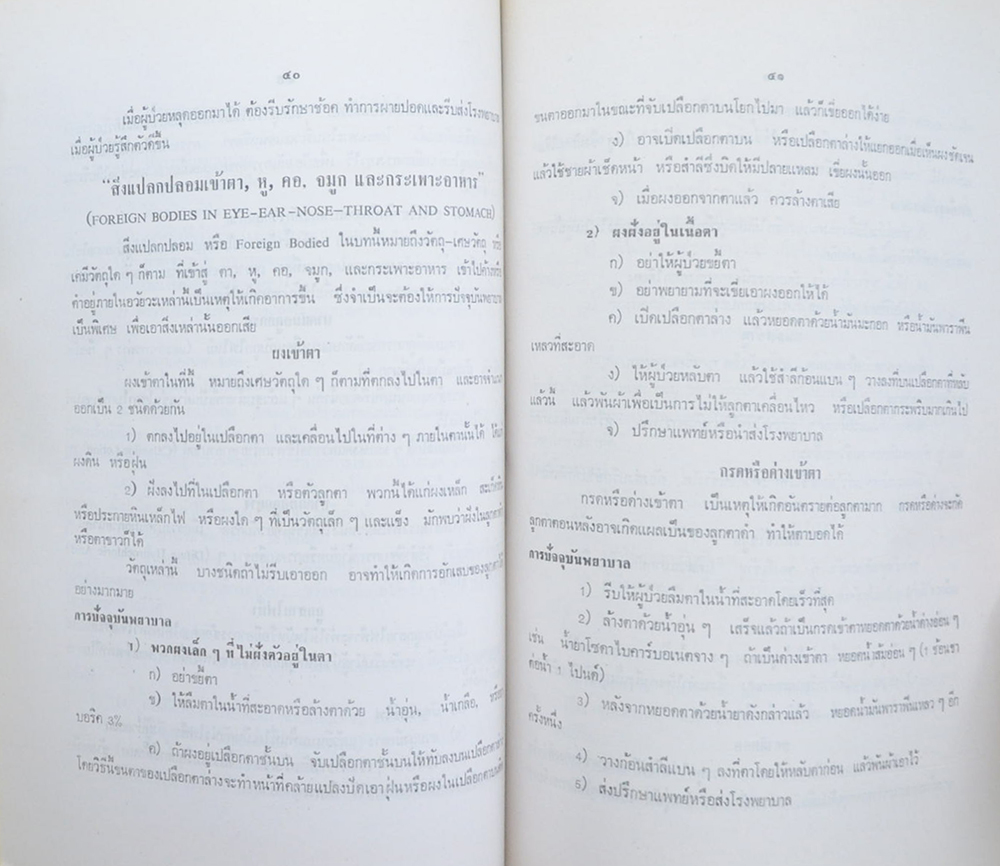 ๔๐
เมื่อผู้ป่วยหลุดออกมาได้ ต้องรีบรักษาช้อค ทำการผายปอดและรีบส่งโรงพยาบาล
เมื่อผู้ป่วยรู้สึกตัวดีขึ้น
"สิ่งแปลกปลอมเข้าตา, หู, คอ, จมูก และกระเพาะอาหาร"
(FOREIGN BODIES IN EYE-EAR-NOSE-THROAT AND STOMACH)
สิ่งแปลกปลอม หรือ Foreign Bodied ในบทนี้หมายถึงวัตถุ-เศษวัตถุ หรือ
เคมีวัตถุใด ๆ ก็ตาม ที่เข้าสู่ ตา, หู, คอ, จมูก, และกระเพาะอาหาร เข้าไปค้างหรือ
คำอยู่ภายในอวัยวะเหล่านี้เป็นเหตุให้เกิดอาการขึ้น ซึ่งจำเป็นจะต้องให้การปัจจุบันพยาบาล
เป็นพิเศษ เพื่อเอาสิ่งเหล่านั้นออกเสีย
ผงเข้าตา
ผงเข้าตาในที่นี้ หมายถึงเศษวัตถุใด ๆ ก็ตามที่ตกลงไปในตา และอาจ
ออกเป็น 2 ชนิดด้วยกัน
1) ตกลงไปอยู่ในเปลือกตา และเคลื่อนไปในที่ต่าง ๆ ภายในตานั้นได้
ผงดิน หรือฝุ่น
2) ฝังลงไปที่ในเปลือกตา หรือตัวลูกตา พวกนี้ได้แก่ผงเหล็ก
หรือประกายหินเหล็กไฟ หรือผงใด ๆ ที่เป็นวัตถุเล็ก ๆ และแข็ง มักพบว่าฝังในลูกตาดำ
หรือตาขาวก็ได้
วัตถุเหล่านี้ บางชนิดถ้าไม่รีบเอาออก อาจทำให้เกิดการอักเสบของลูกตาได้
อย่างมากมาย
การปัจจุบันพยาบาล
1) พวกผงเล็ก ๆ ที่ไม่ฝังตัวอยู่ในตา
ก) อย่าขยี้ตา
ข) ให้ลืมตาในน้ำที่สะอาดหรือล้างตาด้วย น้ำอุ่น, น้ำเกลือ, หรือ
บอริค 3%
ค) ถ้าผงอยู่เปลือกตาชั้นบน จับเปลือกตาชั้นบนให้ทับลงบนเปลือกตาล่าง
โดยวิธีนี้ขนตาของเปลือกตาล่างจะทำหน้าที่คล้ายแปลงปัดเอาฝุ่นหรือผงในเปลือกตาบน
๔๑
ขนตาออกมาในขณะที่จับเปลือกตาบนโยกไปมา แล้วก็เขี่ยออกได้ง่าย
ง) อาจเปิดเปลือกตาบน หรือเปลือกตาล่างให้แยกออกเมื่อเห็นผงชัดเจน
แล้วใช้ชายผ้าเช็ดหน้า หรือสำลีซึ่งบิดให้มีปลายแหลม เขี่ยผงนั้นออก
จ) เมื่อผงออกจากตาแล้ว ควรล้างตาเสีย
2) ผงฝังอยู่ในเนื้อตา
ก) อย่าให้ผู้ป่วยขยี้ตา
ข) อย่าพยายามที่จะเขี่ยเอาผงออกให้ได้
ค) เปิดเปลือกตาล่าง แล้วหยอดตาด้วยน้ำมันมะกอก หรือน้ำมันพาราฟิน
เหลวที่สะอาด
ง) ให้ผู้ป่วยหลับตา แล้วใช้สำลีก้อนแบน ๆ วางลงที่บนเปลือกตาที่หลับ
แล้วนี้ แล้วพันผ้าเพื่อเป็นการไม่ให้ลูกตาเคลื่อนไหว หรือเปลือกตากระพริบมากเกินไป
จ) ปรึกษาแพทย์หรือนำส่งโรงพยาบาล
กรดหรือด่างเข้าตา
กรดหรือด่างเข้าตา เป็นเหตุให้เกิดอันตรายต่อลูกตามาก กรดหรือด่างจะกัด
ลูกตาตอนหลังอาจเกิดแผลเป็นของลูกตาดำ ทำให้ตาบอดได้
การปัจจุบันพยาบาล
1) รีบให้ผู้ป่วยลืมตาในน้ำที่สะอาดโดยเร็วที่สุด
2) ล้างตาด้วยน้ำอุ่น ๆ เสร็จแล้วถ้าเป็นกรดเข้าตาหยอดตาด้วยน้ำด่างอ่อน ๆ
เช่น น้ำยาโซดาไบคาร์บอเนตจาง ๆ ถ้าเป็นด่างเข้าตา หยอดน้ำส้มอ่อน ๆ (1 ช้อนชา
ต่อน้ำ 1 ไปนต์)
3) หลังจากหยอดตาด้วยน้ำยาดังกล่าวแล้ว หยอดน้ำมันพาราฟินเหลว ๆ อีก
ครั้งหนึ่ง
4) วางก้อนสำลีแบน ๆ ลงที่ตาโดยให้หลับตาก่อน แล้วพันผ้าเอาไว้
5) ส่งปรึกษาแพทย์หรือส่งโรงพยาบาล